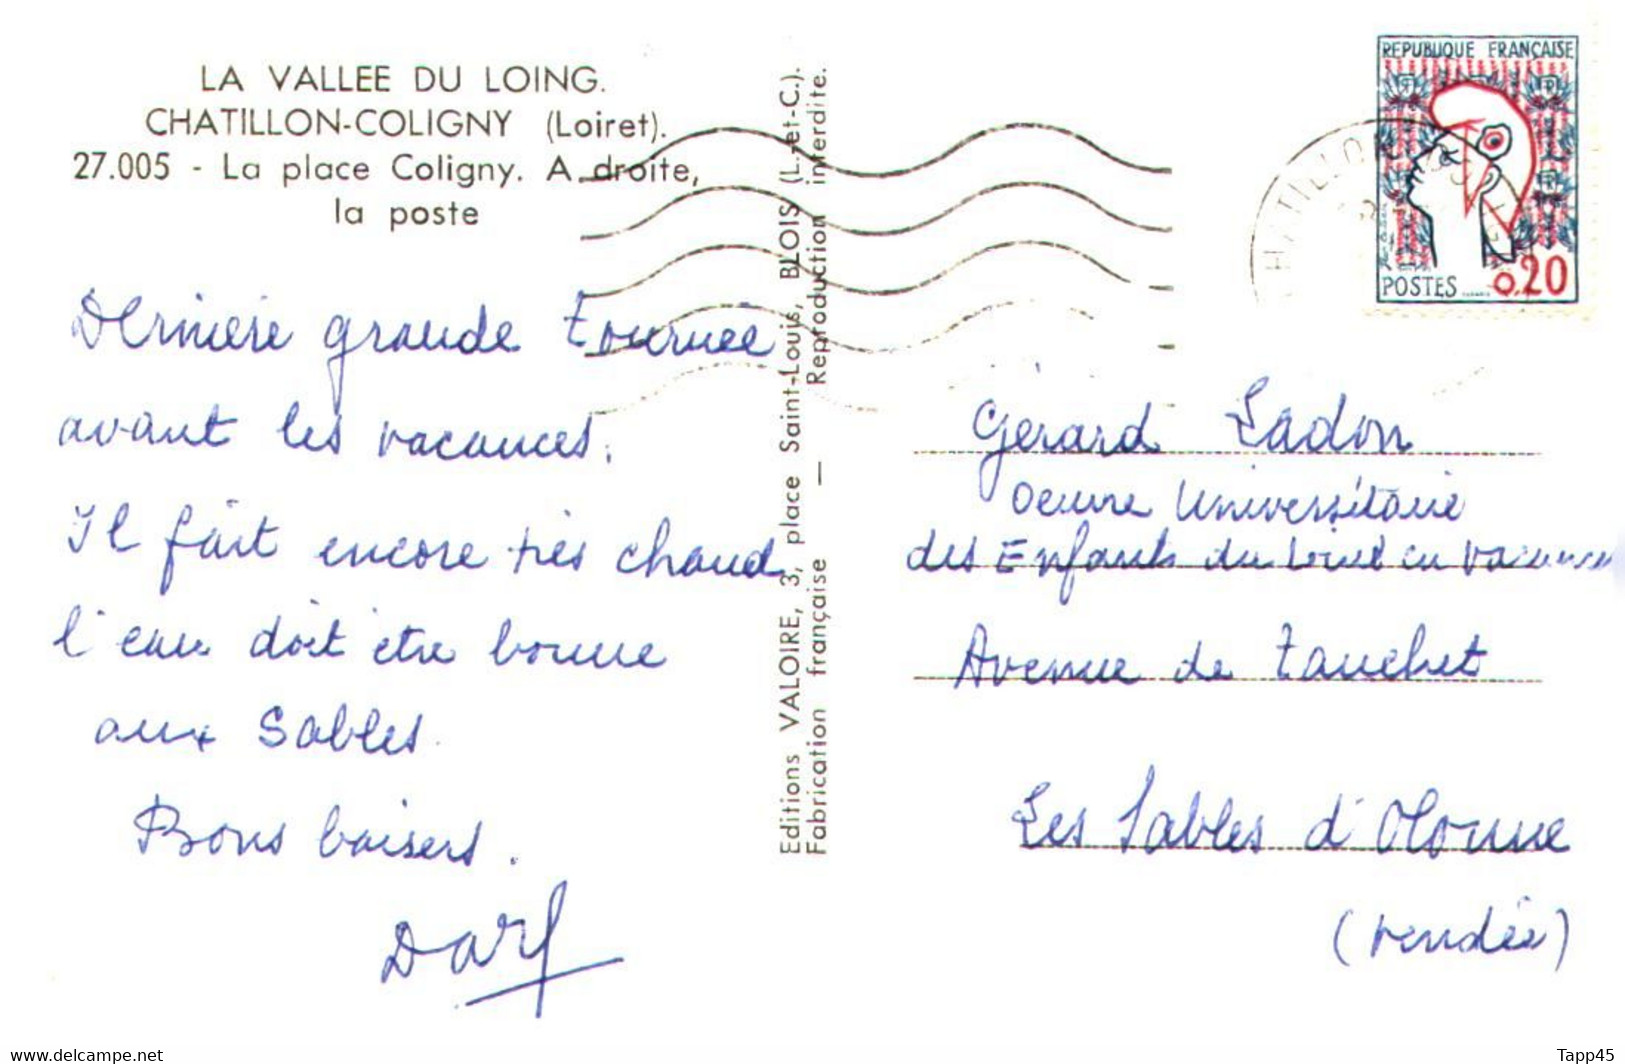 LA VALLEE DU LOING.
CHATILLON-COLIGNY (Loiret).
27.005 - La place Coligny. A droite,
la poste
Dernière grande tournée
avant les vacances.
Il fait encore très chaud
l'eau doit être bonne
aux Sables.
Bons baisers.
Darf
Editions VALOIRE, 3, place Saint-Louis, BLOIS (L.-et-C.).
Fabrication française — Reproduction interdite.
REPUBLIQUE FRANÇAISE
POSTES 0,20
Gérard Ladon
Oeuvre Universitaire
des Enfants du Loiret en vacances
Avenue de Tanchet
Les Sables d'Olonne
(Vendée)
www.delcampe.net
Tapp45